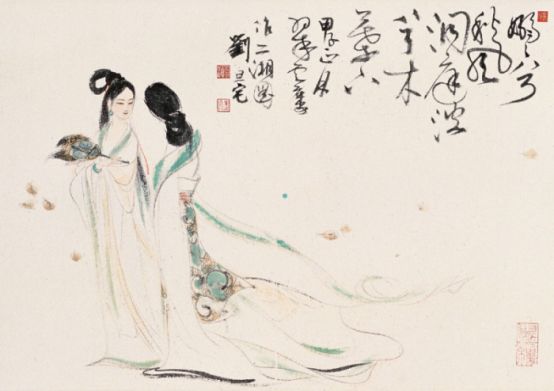 嫋嫋兮
秋風
洞庭波
兮木
葉下
甲子正月
作二湘圖
劉旦宅